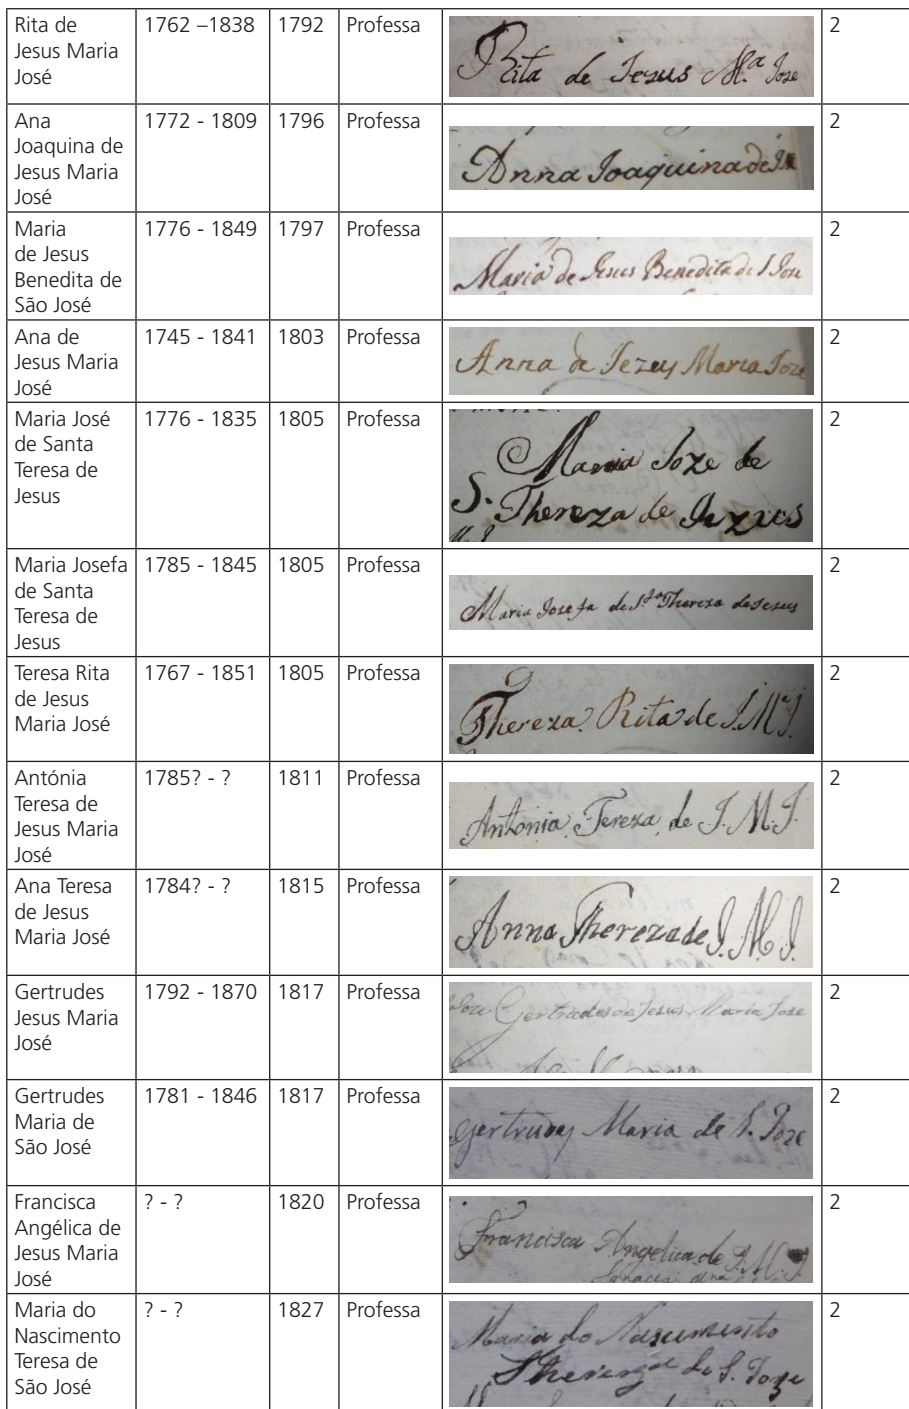 Rita de Jesus Maria José 1762 –1838 1792 Professa Rita de Jesus M.ª Jose 2
Ana Joaquina de Jesus Maria José 1772 - 1809 1796 Professa Anna Joaquina de 2
Maria de Jesus Benedita de São José 1776 - 1849 1797 Professa Maria de Jesus Benedita de S Jose 2
Ana de Jesus Maria José 1745 - 1841 1803 Professa Anna de Jezus Maria Joze 2
Maria José de Santa Teresa de Jesus 1776 - 1835 1805 Professa Maria Joze de
S. Thereza de Jezus 2
Maria Josefa de Santa Teresa de Jesus 1785 - 1845 1805 Professa Maria Josefa de S.ta Thereza de Jesus 2
Teresa Rita de Jesus Maria José 1767 - 1851 1805 Professa Thereza Rita de J. M.ª J. 2
Antónia Teresa de Jesus Maria José 1785? - ? 1811 Professa Antonia Tereza de J. M. J. 2
Ana Teresa de Jesus Maria José 1784? - ? 1815 Professa Anna Thereza de J. M. J. 2
Gertrudes Jesus Maria José 1792 - 1870 1817 Professa Gertrudes de Jesus Maria Jose 2
Gertrudes Maria de São José 1781 - 1846 1817 Professa Gertrudes Maria de S. Joze 2
Francisca Angélica de Jesus Maria José ? - ? 1820 Professa Francisca Angelica de J. M. J. 2
Maria do Nascimento Teresa de São José ? - ? 1827 Professa Maria do Nascimento
Thereza de S. Joze 2